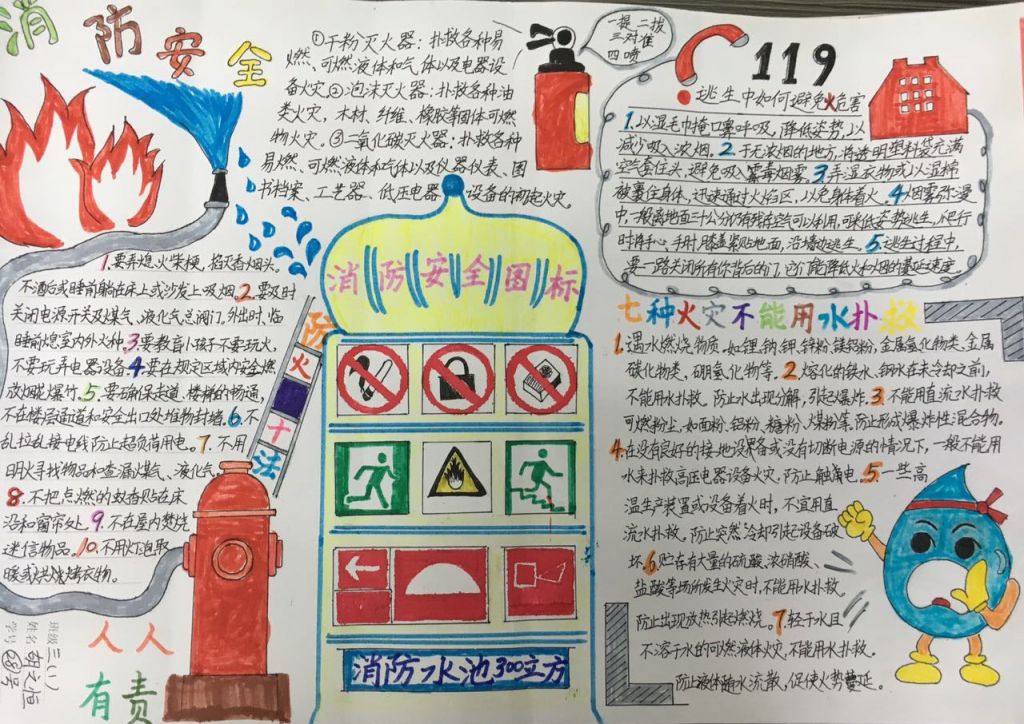 消防安全
①干粉灭火器：扑救各种易
燃、可燃液体和气体以及电器设
备火灾。②泡沫灭火器：扑救各种油
类火灾，木材、纤维、橡胶等固体可燃
物火灾。③二氧化碳灭火器：扑救各种
易燃、可燃液体和气体以及仪器仪表、图
书档案、工艺器、低压电器设备的初起火灾。
一提二拔
三对准
四喷
119
逃生中如何避免火危害
1.以湿毛巾掩口鼻呼吸，降低姿势，以
减少吸入浓烟。2.于无浓烟的地方，将透明塑料袋充满
空气套住头，避免吸入有毒烟雾。3.弄湿衣物或以湿棉
被裹住身体，迅速通过火焰区，以免身体着火。4.烟雾弥漫
中，一般离地面三十公分仍有残存空气可以利用，可采低姿势逃生，爬行
时将手心、手肘、膝盖紧贴地面，沿墙边逃生。5.逃生过程中，
要一路关闭所有你背后的门，它们能降低火和烟的蔓延速度。
防火十法
1.要弄熄火柴梗，掐灭香烟头。
不酒后或睡前躺在床上或沙发上吸烟。2.要及时
关闭电源开关及煤气、液化气总阀门。外出时、临
睡前熄室内外火种。3.要教育小孩子不要玩火，
不要玩弄电器设备。4.要在规定区域内安全燃
放烟花爆竹。5.要确保走道、楼梯的畅通，
不在楼层通道和安全出口处堆物封堵。6.不
乱拉乱接电线，防止超负荷用电。7.不用
明火寻找物品和查漏煤气、液化气。
8.不把点燃的蚊香贴在床
沿和窗帘处。9.不在屋内焚烧
迷信物品。10.不用灯泡取
暖或烘烤衣物。
消防安全图标
消防水池300立方
七种火灾不能用水扑救
1.遇水燃烧物质，如锂、钠、钾、锌粉、镁铝粉，金属氢化物类、金属
碳化物类，硼氢化物等。2.熔化的铁水、钢水在未冷却之前，
不能用水扑救。防止水出现分解，引起爆炸。3.不能用直流水扑救
可燃粉尘，如面粉、铝粉、糖粉、煤粉等，防止形成爆炸性混合物。
4.在没有良好的接地设备或没有切断电源的情况下，一般不能用
水来扑救高压电器设备火灾，防止触电。5.一些高
温生产装置或设备着火时，不宜用直
流水扑救。防止突然冷却引起设备破
坏。6.贮存有大量的硫酸、浓硝酸、
盐酸等场所发生火灾时，不能用水扑救。
防止出现放热引起燃烧。7.轻于水且
不溶于水的可燃液体火灾，不能用水扑救。
防止液体随水流散，促使火势蔓延。
人人
有责
班级 三(1)
姓名
学号 28号